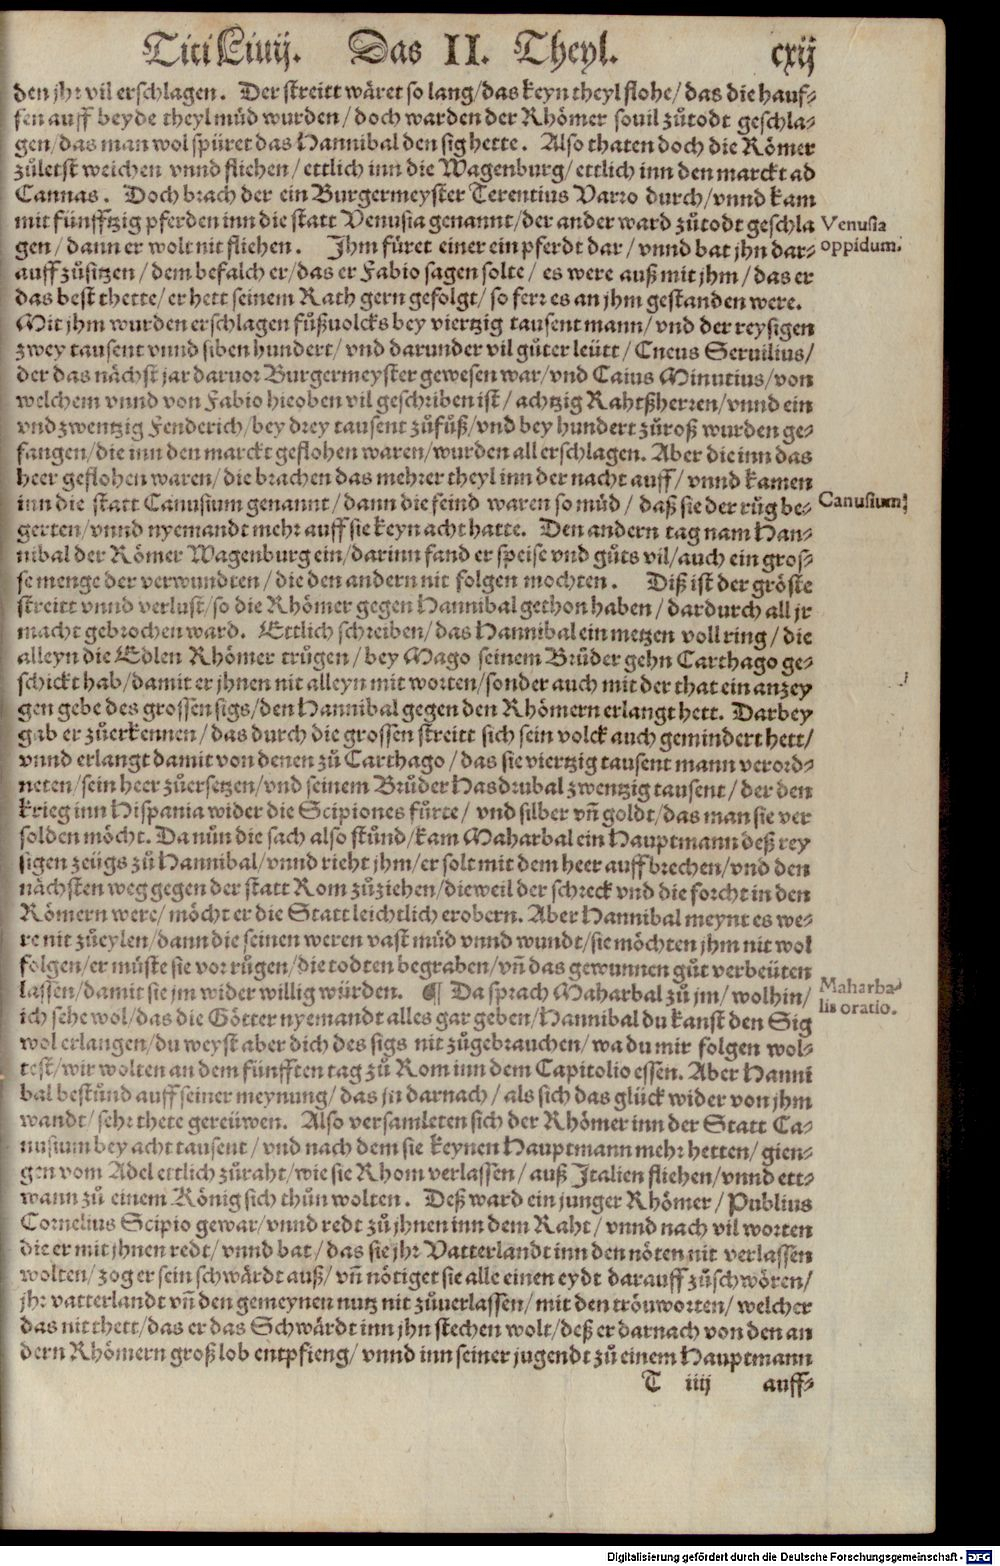 Titi Liuij. Das II. Theyl. cxij
den jhr vil erschlagen. Der streitt wäret so lang/das keyn theyl flohe/das die hauf-
fen auff beyde theyl müd wurden/doch warden der Rhömer souil zůtodt geschla-
gen/das man wol spüret das Hannibal den sig hette. Also thaten doch die Römer
zůletst weichen vnnd fliehen/ettlich inn die Wagenburg/ettlich inn den marckt ad
Cannas. Doch brach der ein Burgermeyster Terentius Varro durch/vnnd kam
mit fünfftzig pferden inn die statt Venusia genannt/der ander ward zůtodt geschla
Venusia
gen/dann er wolt nit fliehen. Jhm füret einer ein pferdt dar/vnnd bat jhn dar-
oppidum.
auff zůsitzen/dem befalch er/das er Fabio sagen solte/es were auß mit jhm/das er
das best thette/er hett seinem Rath gern gefolgt/so ferr es an jhm gestanden were.
Mit jhm wurden erschlagen fůßuolcks bey viertzig tausent mann/vnd der reysigen
zwey tausent vnnd siben hundert/vnd darunder vil gůter leütt/Cneus Seruilius/
der das nächst jar daruor Burgermeyster gewesen war/vnd Caius Minutius/von
welchem vnnd von Fabio hieoben vil geschriben ist/achtzig Rahtßherren/vnnd ein
vnd zwentzig Fenderich/bey drey tausent zůfůß/vnd bey hundert zůroß wurden ge-
fangen/die inn den marckt geflohen waren/wurden all erschlagen. Aber die inn das
heer geflohen waren/die brachen das mehrer theyl inn der nacht auff/vnnd kamen
inn die statt Canusium genannt/dann die feind waren so müd/daß sie der růg be-
Canusium.
gerten/vnnd nyemandt mehr auff sie keyn acht hatte. Den andern tag nam Han-
nibal der Römer Wagenburg ein/darinn fand er speise vnd gůts vil/auch ein gros-
se menge der verwundten/die den andern nit folgen mochten. Diß ist der gröste
streitt vnnd verlust/so die Rhömer gegen Hannibal gethon haben/dardurch all jr
macht gebrochen ward. Ettlich schreiben/das Hannibal ein metzen voll ring/die
alleyn die Edlen Rhömer trůgen/bey Mago seinem Brůder gehn Carthago ge-
schickt hab/damit er jhnen nit alleyn mit worten/sonder auch mit der that ein anzey
gen gebe des grossen sigs/den Hannibal gegen den Rhömern erlangt hett. Darbey
gab er zůerkennen/das durch die grossen streitt sich sein volck auch gemindert hett/
vnnd erlangt damit von denen zů Carthago/das sie viertzig tausent mann verord-
neten/sein heer zůersetzen/vnd seinem Brůder Hasdrubal zwentzig tausent/der den
krieg inn Hispania wider die Scipiones fürte/vnd silber vñ goldt/das man sie ver
solden möcht. Da nůn die sach also stůnd/kam Maharbal ein Hauptmann deß rey
sigen zeügs zů Hannibal/vnnd rieht jhm/er solt mit dem heer auff brechen/vnd den
nächsten weg gegen der statt Rom zůziehen/dieweil der schreck vnd die forcht in den
Römern were/möcht er die Statt leichtlich erobern. Aber Hannibal meynt es we-
re nit zůeylen/dann die seinen weren vast müd vnnd wundt/sie möchten jhm nit wol
folgen/er müste sie vor růgen/die todten begraben/vñ das gewunnen gůt verbeüten
lassen/damit sie jm wider willig würden. ¶ Da sprach Maharbal zů jm/wolhin/
Maharba-
lis oratio.
ich sehe wol/das die Götter nyemandt alles gar geben/Hannibal du kanst den Sig
wol erlangen/du weyst aber dich des sigs nit zůgebrauchen/wa du mir folgen wol-
test/wir wolten an dem fünfften tag zů Rom inn dem Capitolio essen. Aber Hanni
bal bestůnd auff seiner meynung/das jn darnach/als sich das glück wider von jhm
wandt/sehr thete gereüwen. Also versamleten sich der Rhömer inn der Statt Ca-
nusium bey acht tausent/vnd nach dem sie keynen Hauptmann mehr hetten/gien-
gen vom Adel ettlich zůraht/wie sie Rhom verlassen/auß Italien fliehen/vnnd ett-
wann zů einem König sich thůn wolten. Deß ward ein junger Rhömer/Publius
Cornelius Scipio gewar/vnnd redt zů jhnen inn dem Raht/vnnd nach vil worten
die er mit jhnen redt/vnnd bat/das sie jhr Vatterlandt inn den nöten nit verlassen
wolten/zog er sein schwärdt auß/vñ nötiget sie alle einen eydt darauff zůschwören/
jhr vatterlandt vñ den gemeynen nutz nit zůuerlassen/mit den tröuworten/welcher
das nit thett/das er das Schwärdt inn jhn stechen wolt/deß er darnach von den an
dern Rhömern groß lob entpfieng/vnnd inn seiner jugendt zů einem Hauptmann
T iiij auff-
Digitalisierung gefördert durch die Deutsche Forschungsgemeinschaft - DFG